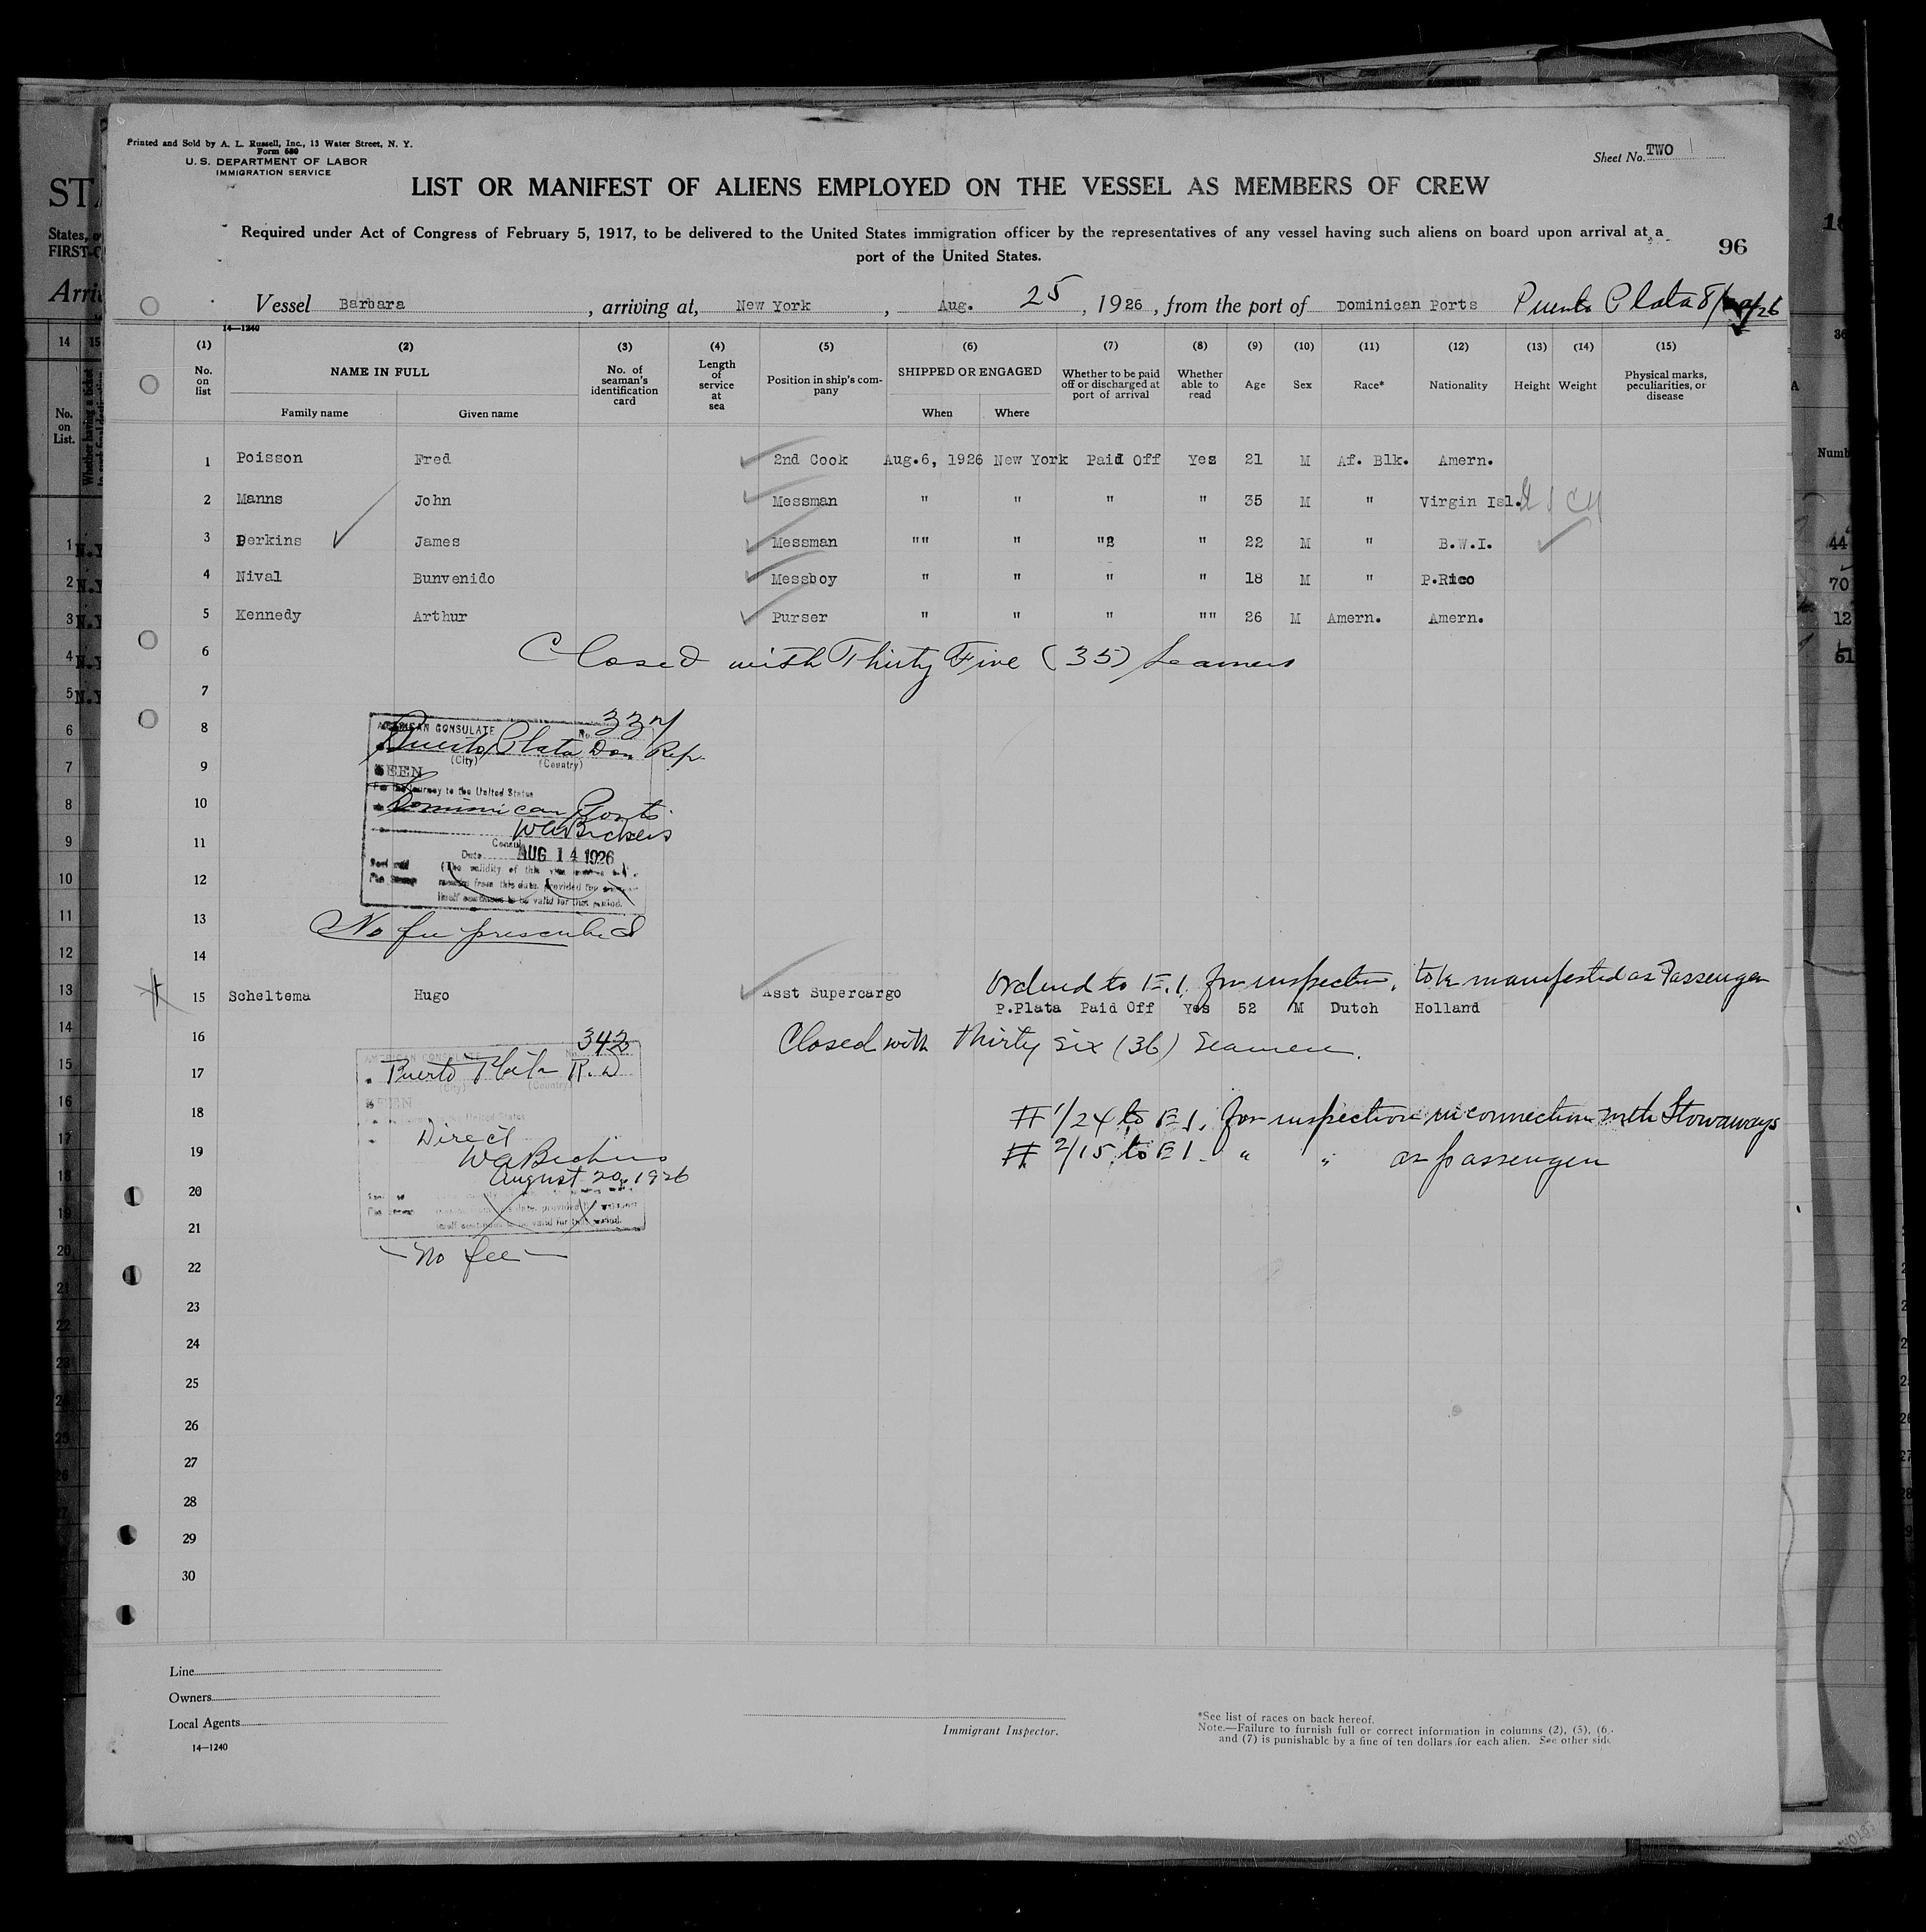 Printed and Sold by A. L. Russell, Inc., 13 Water Street, N. Y.
Form 680
U. S. DEPARTMENT OF LABOR
IMMIGRATION SERVICE
Sheet No. TWO
LIST OR MANIFEST OF ALIENS EMPLOYED ON THE VESSEL AS MEMBERS OF CREW
Required under Act of Congress of February 5, 1917, to be delivered to the United States immigration officer by the representatives of any vessel having such aliens on board upon arrival at a
port of the United States.
96
Vessel Barbara, arriving at, New York, Aug. 25, 1926, from the port of Dominican Ports Puerto Plata
14—1240
(1) (2) (3) (4) (5) (6) (7) (8) (9) (10) (11) (12) (13) (14) (15)
No. on list NAME IN FULL No. of seaman's identification card Length of service at sea Position in ship's company SHIPPED OR ENGAGED Whether to be paid off or discharged at port of arrival Whether able to read Age Sex Race* Nationality Height Weight Physical marks, peculiarities, or disease
Family name Given name When Where
1 Poisson Fred 2nd Cook Aug.6, 1926 New York Paid Off Yes 21 M Af. Blk. Amern.
2 Manns John Messman " " " " 35 M " Virgin Isl.
3 Perkins James Messman "" " " " 22 M " B.W.I.
4 Nival Bunvenido Messboy " " " " 18 M " P.Rico
5 Kennedy Arthur Purser " " " "" 26 M Amern. Amern.
6 Closed with Thirty Five (35) Seamen
7
8 AMERICAN CONSULATE No.
Puerto Plata Dom. Rep.
9 (City) (Country)
SEEN
For the journey to the United States
10 Dominican Ports
WABickers
11 Consul
Date AUG 14 1926
(The validity of this
12 from this date, provided the
itself continues to be valid for this period.
13 No fee prescribed
14
Ordered to E.I. for inspection, to be manifested as Passenger
15 Scheltema Hugo Asst Supercargo P.Plata Paid Off Yes 52 M Dutch Holland
16 Closed with Thirty six (36) Seamen.
AMERICAN CONSULATE No. 342
17 Puerto Plata R.D
(City) (Country)
SEEN
18 # 1/24 to E.I. for inspection in connection with Stowaways
Direct
19 # 2/15 to E.I. " " as passenger
WABickers
August 20, 1926
20
21 itself continues to be valid for this period.
No fee
22
23
24
25
26
27
28
29
30
Line
Owners
Local Agents
14—1240
Immigrant Inspector.
*See list of races on back hereof.
Note.—Failure to furnish full or correct information in columns (2), (5), (6,
and (7) is punishable by a fine of ten dollars for each alien. See other side